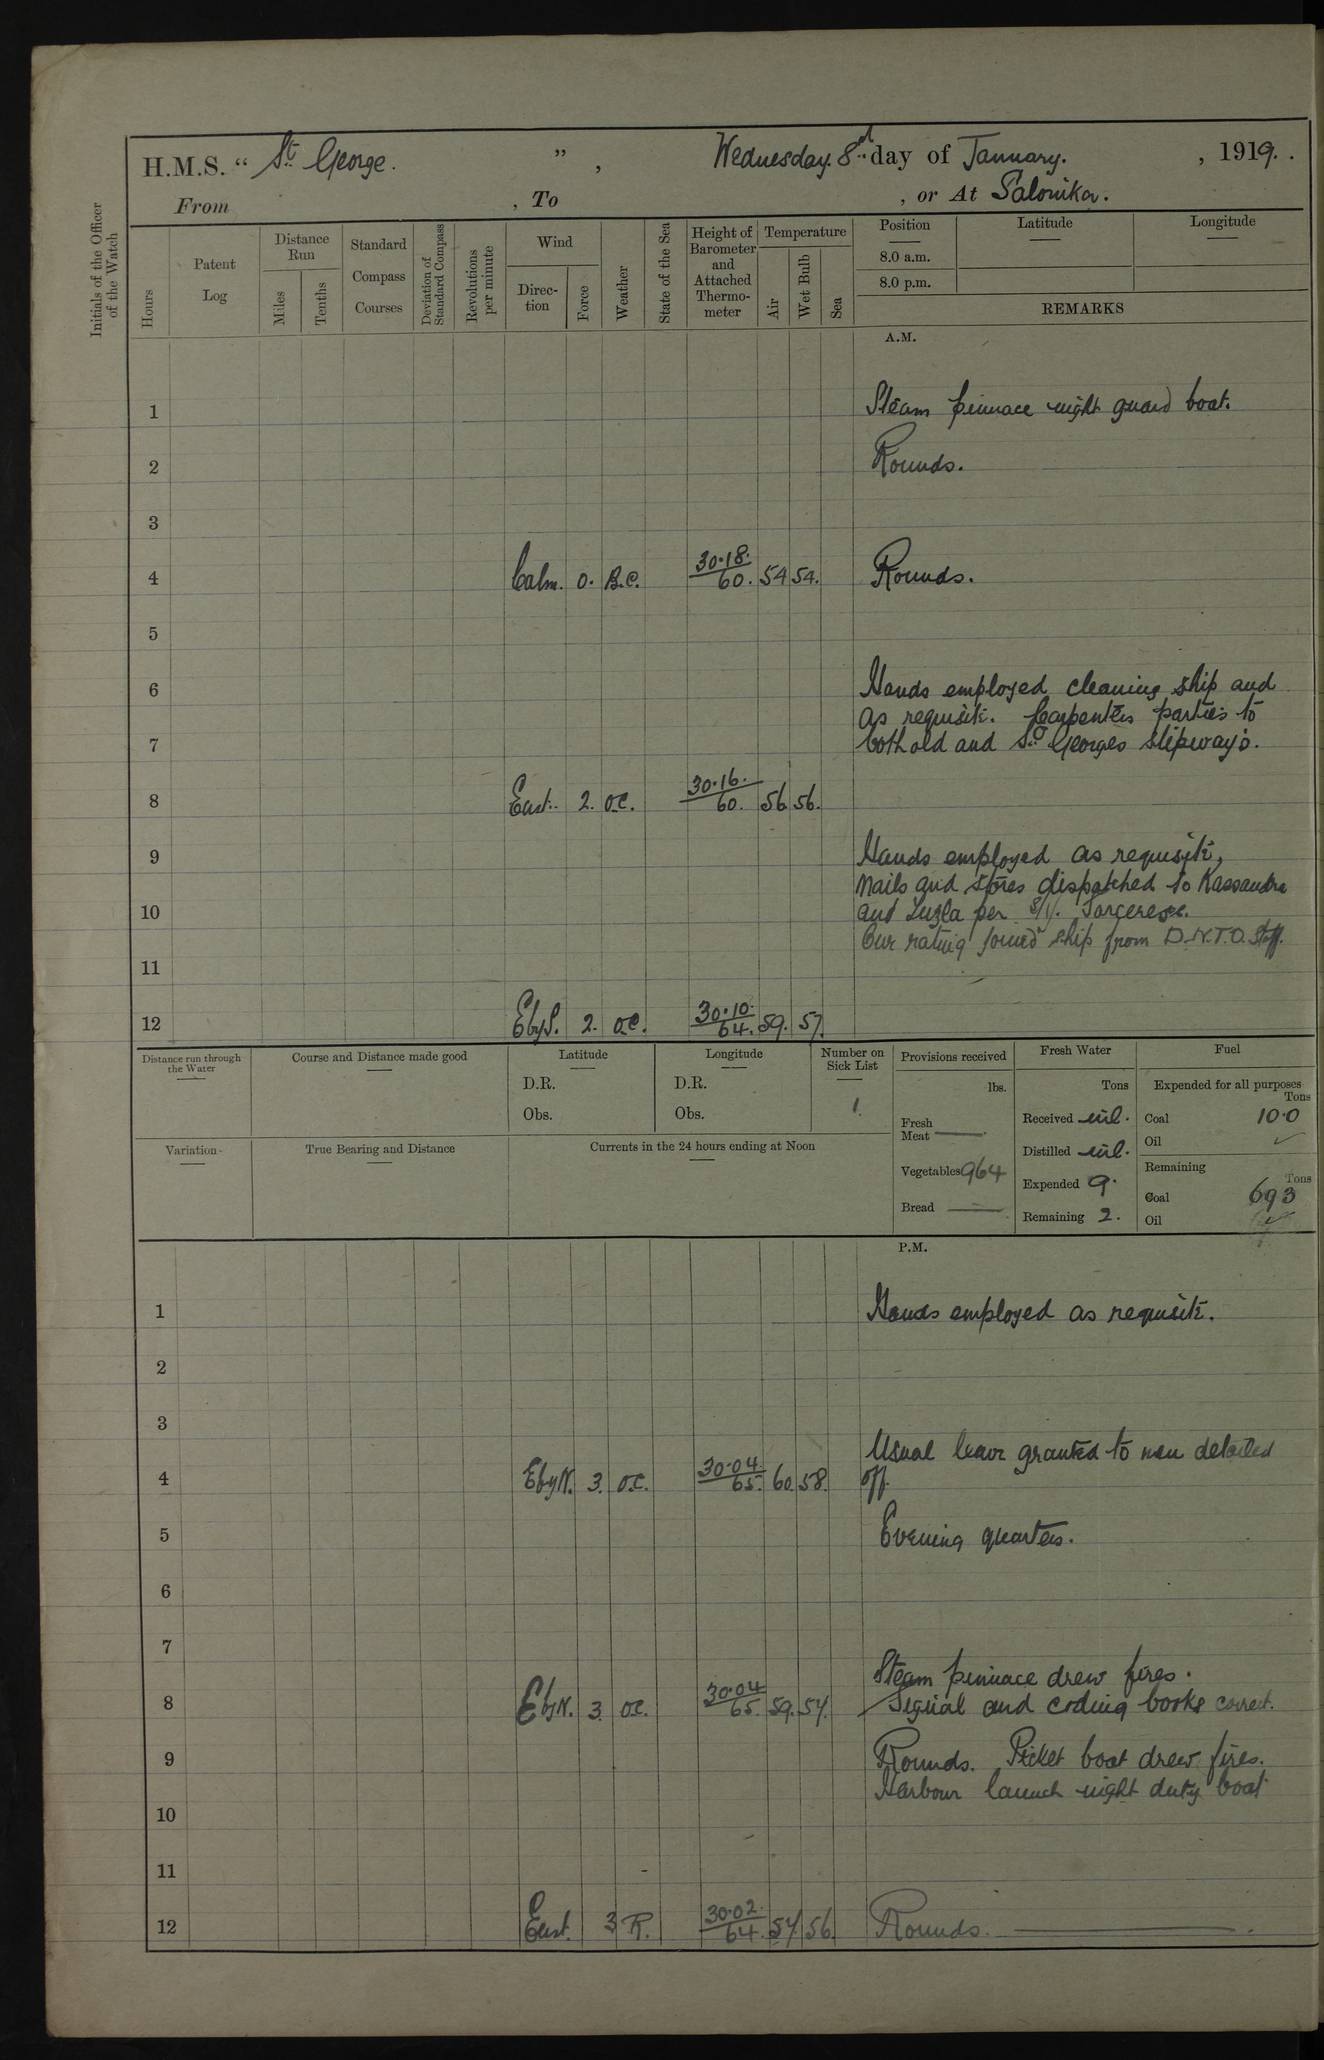 H.M.S. “ St George. ” , Wednesday. 8th day of January. , 1919. .
From , To , or At Salonika.
Initials of the Officer of the Watch
Hours
Patent Log
Distance Run
Miles
Tenths
Standard Compass Courses
Deviation of Standard Compass
Revolutions per minute
Wind
Direction
Force
Weather
State of the Sea
Height of Barometer and Attached Thermometer
Temperature
Air
Wet Bulb
Sea
Position Latitude Longitude
8.0 a.m.
8.0 p.m.
REMARKS
A.M.
1 Steam pinnace night guard boat.
2 Rounds.
3
4 Calm. 0. B.C. 30.18. 60. 54 54. Rounds.
5
6 Hands employed cleaning ship and
as requisite. Carpenters parties to
7 both old and St Georges slipways.
8 East. 2. O.C. 30.16. 60. 56 56.
9 Hands employed as requisite,
Mails and stores dispatched to Kassandra
10 and Tuzla per S/V.
One rating joined ship from D.N.T.O. Staff.
11
12 E by S. 2. O.C. 30.10. 64. 59. 57.
Distance run through the Water
Course and Distance made good
Latitude
D.R.
Obs.
Longitude
D.R.
Obs.
Number on Sick List
1
Provisions received
lbs.
Fresh Meat ——
Vegetables 964
Bread ——
Fresh Water
Tons
Received nil.
Distilled nil.
Expended 9.
Remaining 2.
Fuel
Expended for all purposes
Tons
Coal 10.0
Oil ✓
Remaining
Tons
Coal 693
Oil ✓
Variation
True Bearing and Distance
Currents in the 24 hours ending at Noon
P.M.
1 Hands employed as requisite.
2
3
Usual leave granted to men detailed
4 E by N. 3. O.C. 30.04 65. 60. 58. off.
5 Evening quarters.
6
7
Steam pinnace drew fires.
8 E by N. 3. O.C. 30.04 65. 59. 57. Signal and coding books correct.
9 Rounds. Picket boat drew fires.
Harbour launch night duty boat
10
11
12 East. 3 R. 30.02. 64. 57. 56. Rounds. ——